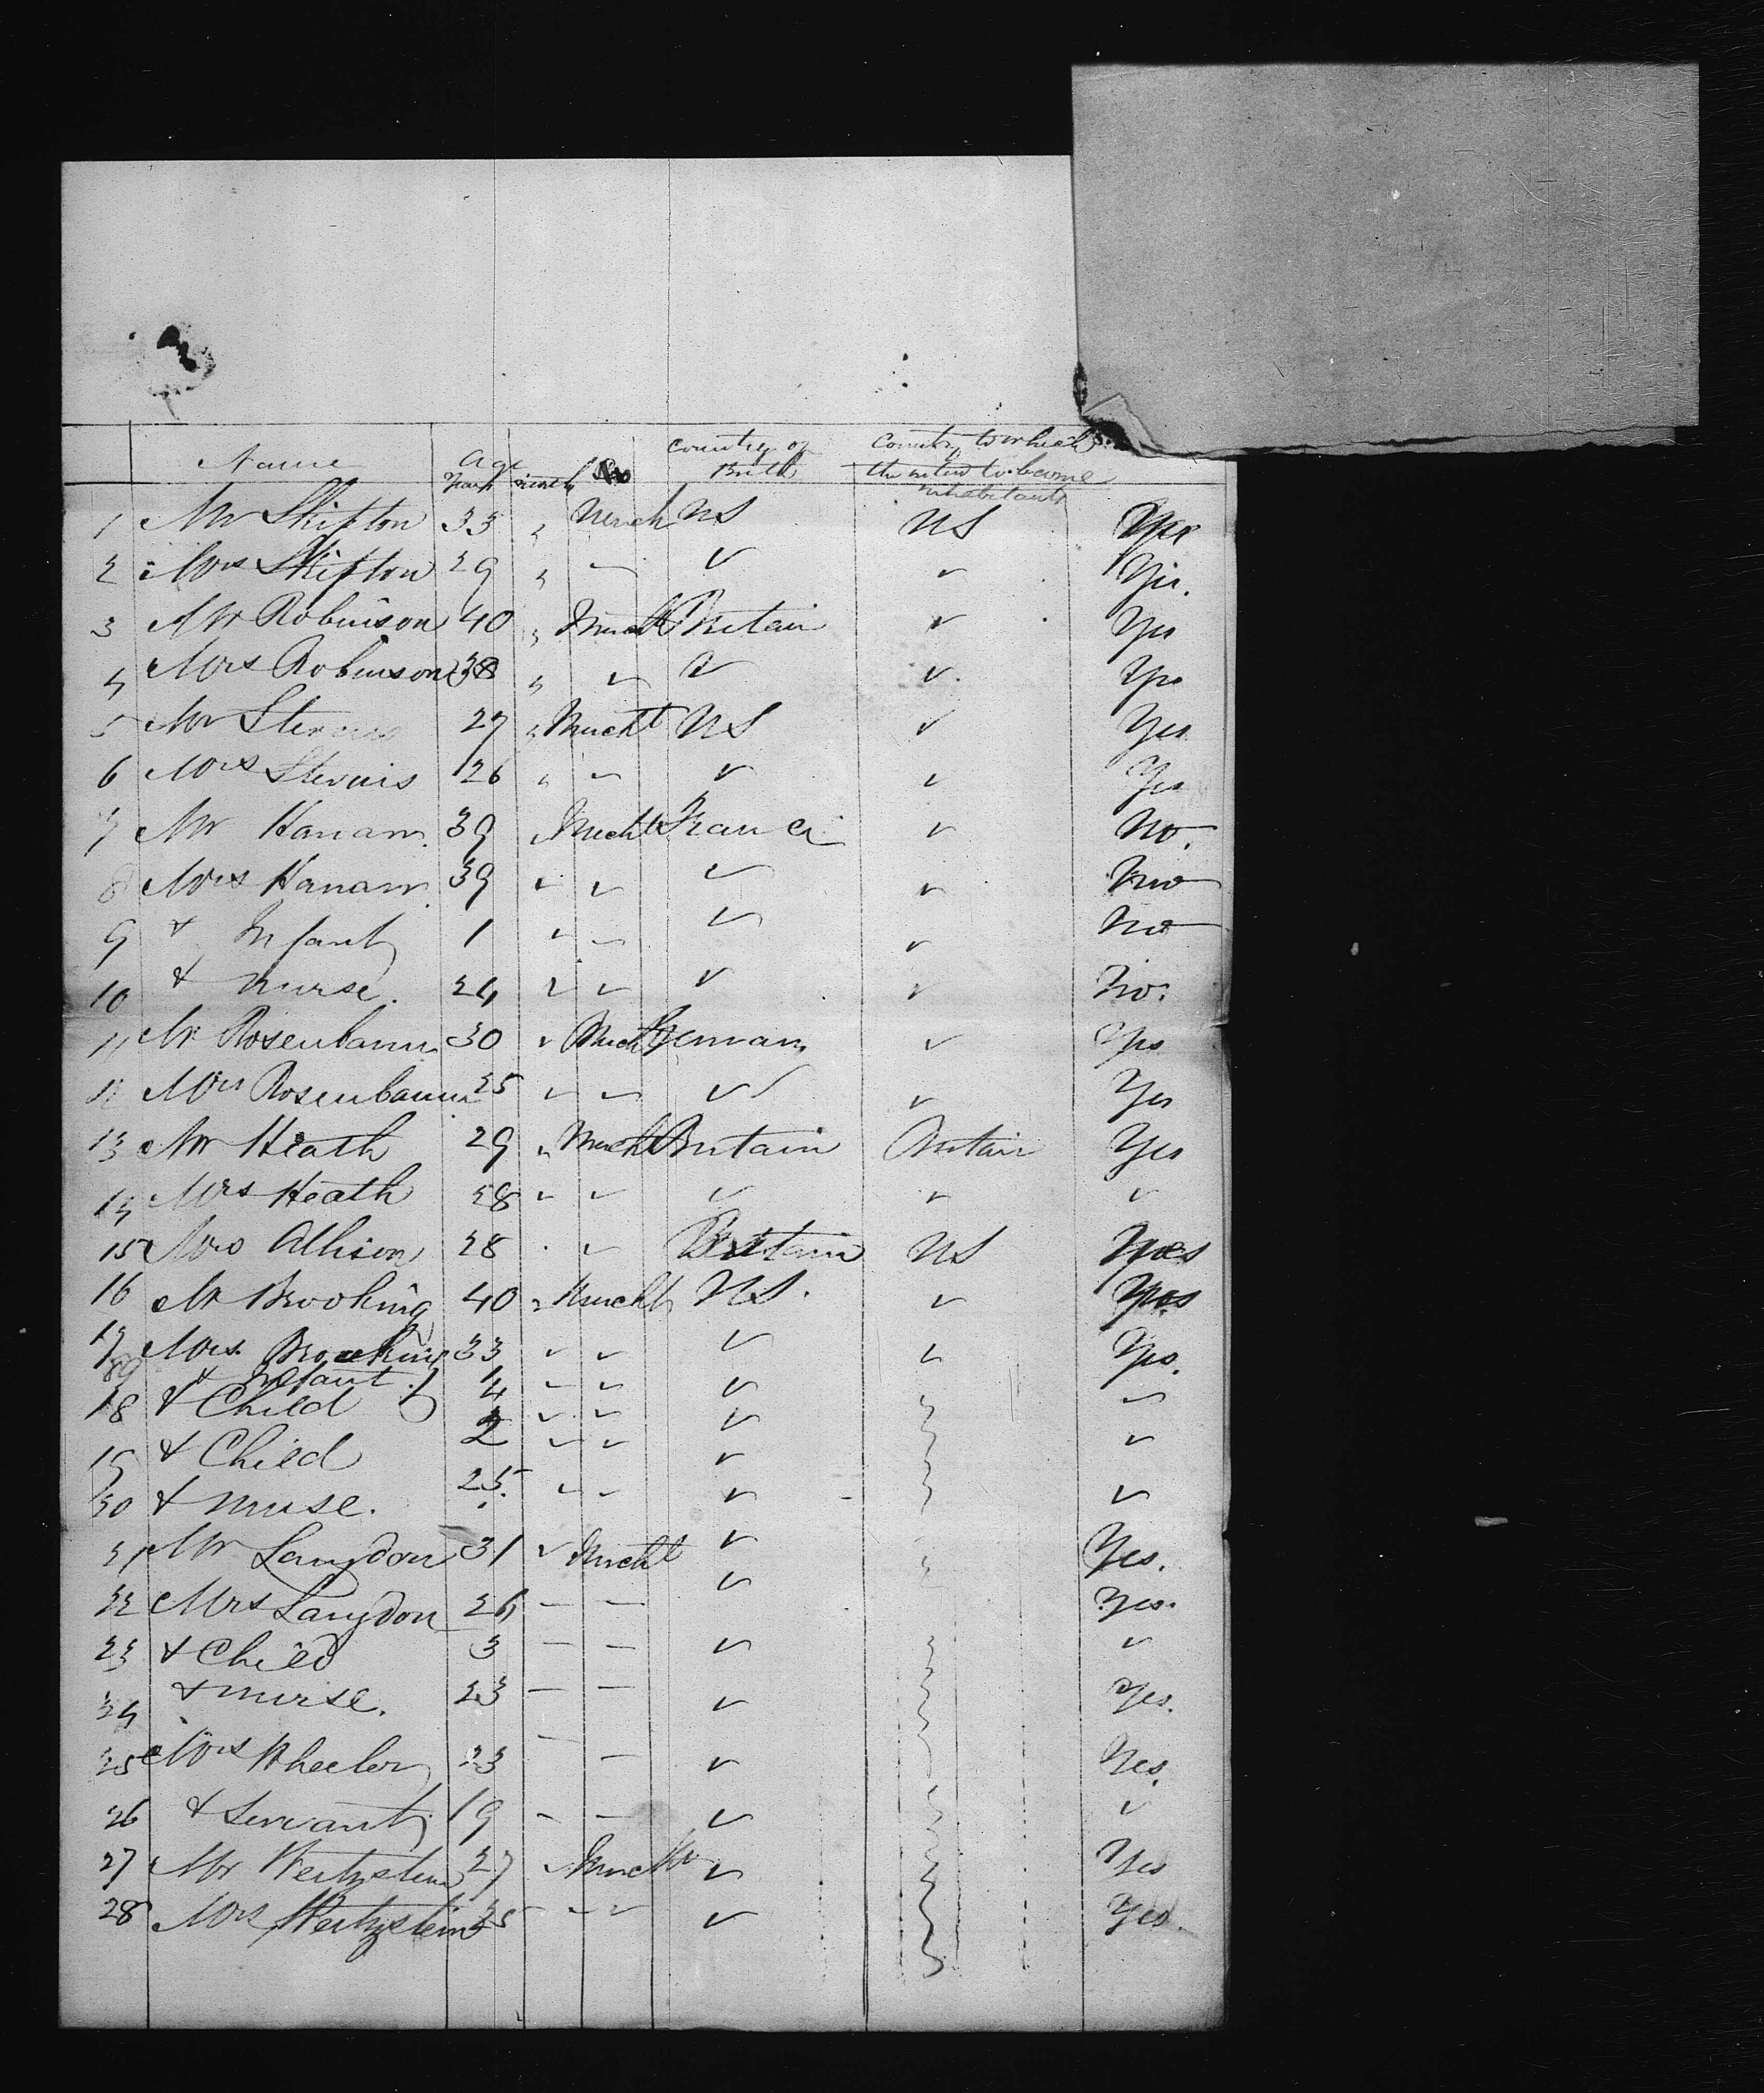 Name Age Country of Country to which
Years month No Birth the intend to become
inhabitants
1 Mr Skipton 35 " Mercht US US Yes
2 Mrs Skipton 29 " — ✓ ✓ Yes.
3 Mr Robinson 40 " Mercht Britain ✓ Yes
4 Mrs Robinson 38 " ✓ ✓ ✓ Yes
5 Mr Stevens 27 " Mercht US ✓ Yes
6 Mrs Stevens 26 " ✓ ✓ ✓ Yes
7 Mr Hanaw. 39 " Mercht France ✓ No.
8 Mrs Hanaw. 39 ✓ ✓ ✓ ✓ No
9 & Infant 1 ✓ ✓ ✓ ✓ No
10 & nurse. 24 ✓ ✓ ✓ ✓ No.
11 Mr Rosenbaum 30 ✓ Mercht German ✓ Yes
12 Mrs Rosenbaum 25 ✓ ✓ ✓ ✓ Yes
13 Mr Heath 29 " Mercht Britain Britain Yes
14 Mrs Heath 28 ✓ ✓ ✓ ✓ ✓
15 Mrs Allison 28 ✓ Brittain US Yes
16 Mr Brooking 40 " Mercht US. ✓ Yes
17 Mrs. Brooking 33 ✓ ✓ ✓ ✓ Yes.
& Infant 1 ✓ ✓ ✓
18 & Child 4 ✓ ✓ ✓ ✓
19 & Child 2 ✓ ✓ ✓ ✓
20 & nurse. 25. ✓ ✓ ✓ ✓
21 Mr Langdon 31 ✓ Mercht ✓ Yes.
22 Mrs Langdon 26 — — ✓ Yes.
23 & Child 3 — — ✓ ✓
24 & nurse. 23 — — ✓ Yes.
25 Mrs Wheeler 23 — — ✓ Yes.
26 & Servant 19 — — ✓ ✓
27 Mr Wertzstein 27 ✓ Mercht ✓ Yes
28 Mrs Wertzstein 25 — ✓ ✓ ✓ Yes.